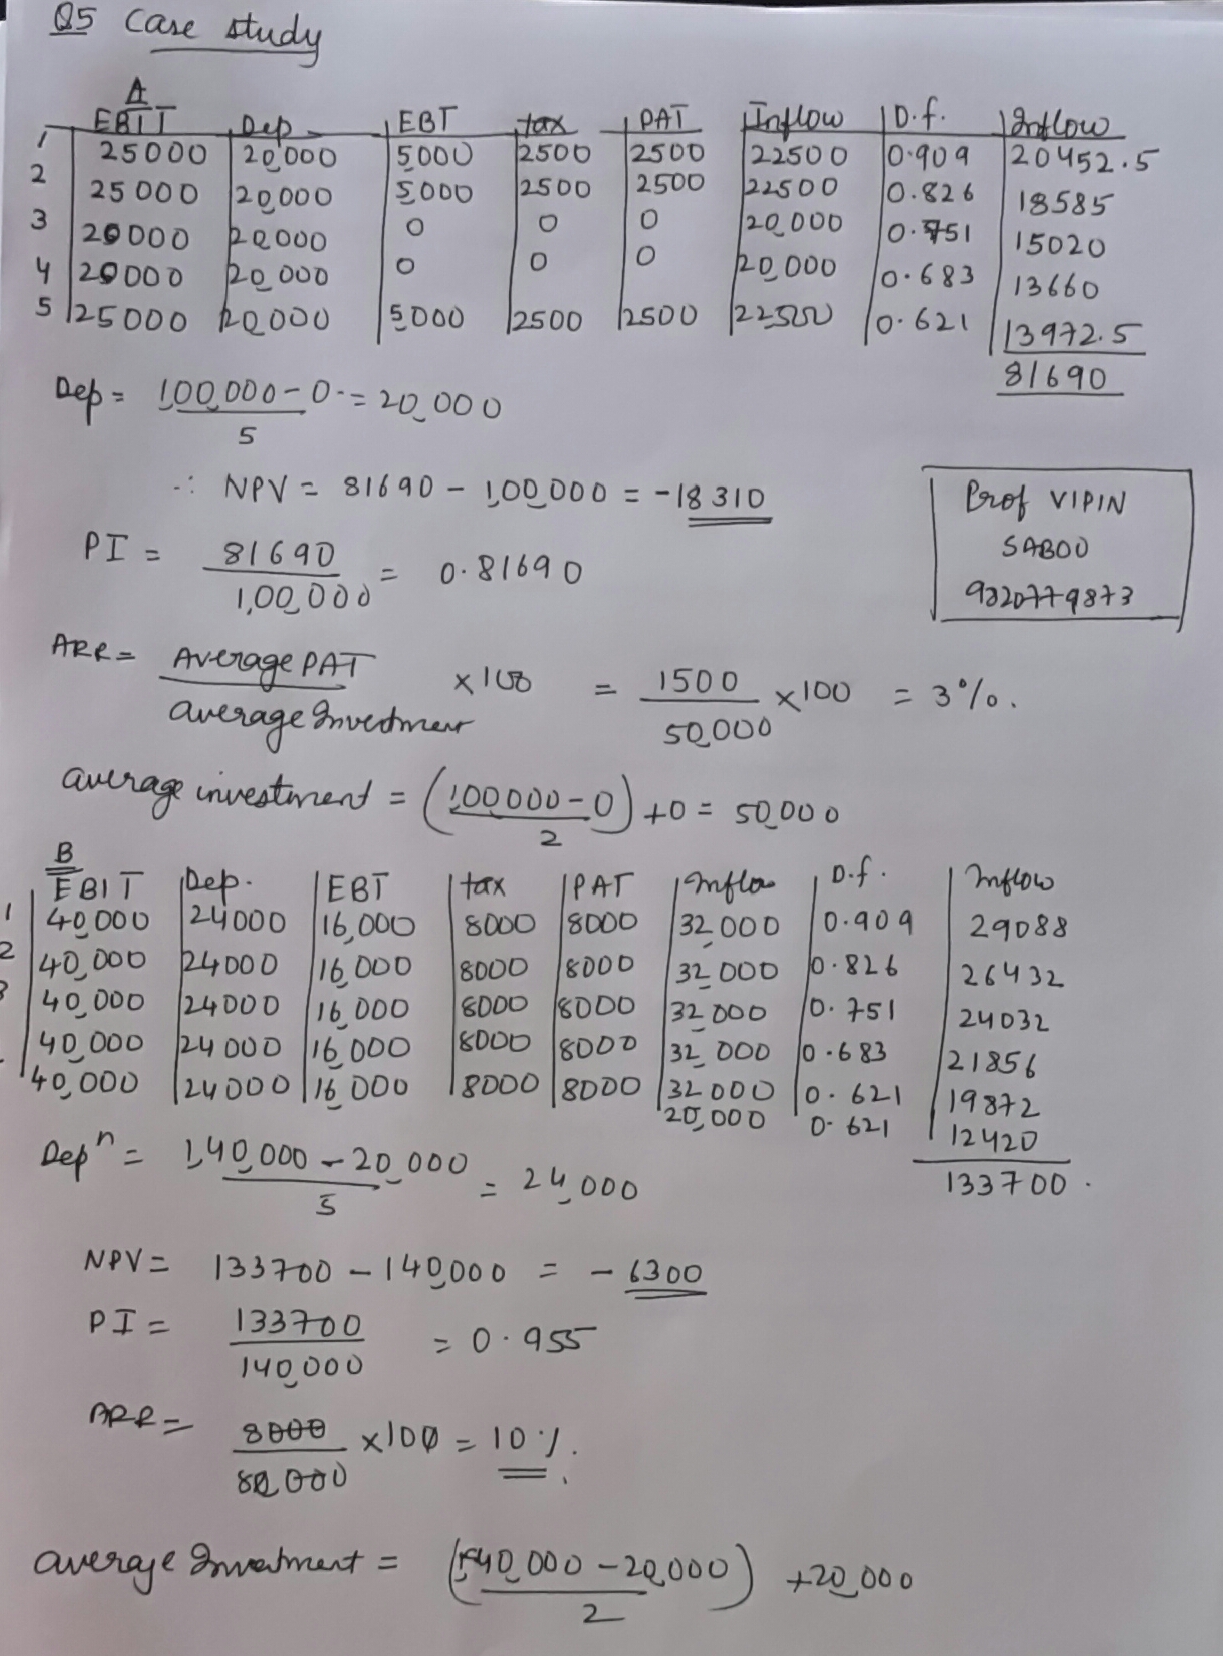 Q5 Case study
A
EBIT Dep EBT tax PAT Inflow D.f. Inflow
1 25000 20,000 5000 2500 2500 22500 0.909 20452.5
2 25000 20,000 5000 2500 2500 22500 0.826 18585
3 20000 20000 0 0 0 20,000 0.751 15020
4 20000 20,000 0 0 0 20,000 0.683 13660
5 25000 20,000 5000 2500 2500 22500 0.621 13972.5
81690
Dep = 1,00,000 - 0 = 20,000
5
∴ NPV = 81690 - 1,00,000 = -18310
Prof VIPIN
SABOO
9820779873
PI = 81690 = 0.81690
1,00,000
ARR = Average PAT x100 = 1500 x100 = 3%.
average Investment 50,000
average investment = (1,00,000 - 0) + 0 = 50,000
2
B
EBIT Dep. EBT tax PAT Inflow D.f. Inflow
1 40,000 24000 16,000 8000 8000 32,000 0.909 29088
2 40,000 24000 16,000 8000 8000 32,000 0.826 26432
3 40,000 24000 16,000 8000 8000 32,000 0.751 24032
40,000 24000 16,000 8000 8000 32,000 0.683 21856
40,000 24000 16,000 8000 8000 32,000 0.621 19872
20,000 0.621 12420
133700.
Depn = 1,40,000 - 20,000 = 24,000
5
NPV = 133700 - 140,000 = -6300
PI = 133700 = 0.955
140,000
ARR = 8000 x100 = 10%.
80,000
average Investment = (1,40,000 - 20,000) + 20,000
2